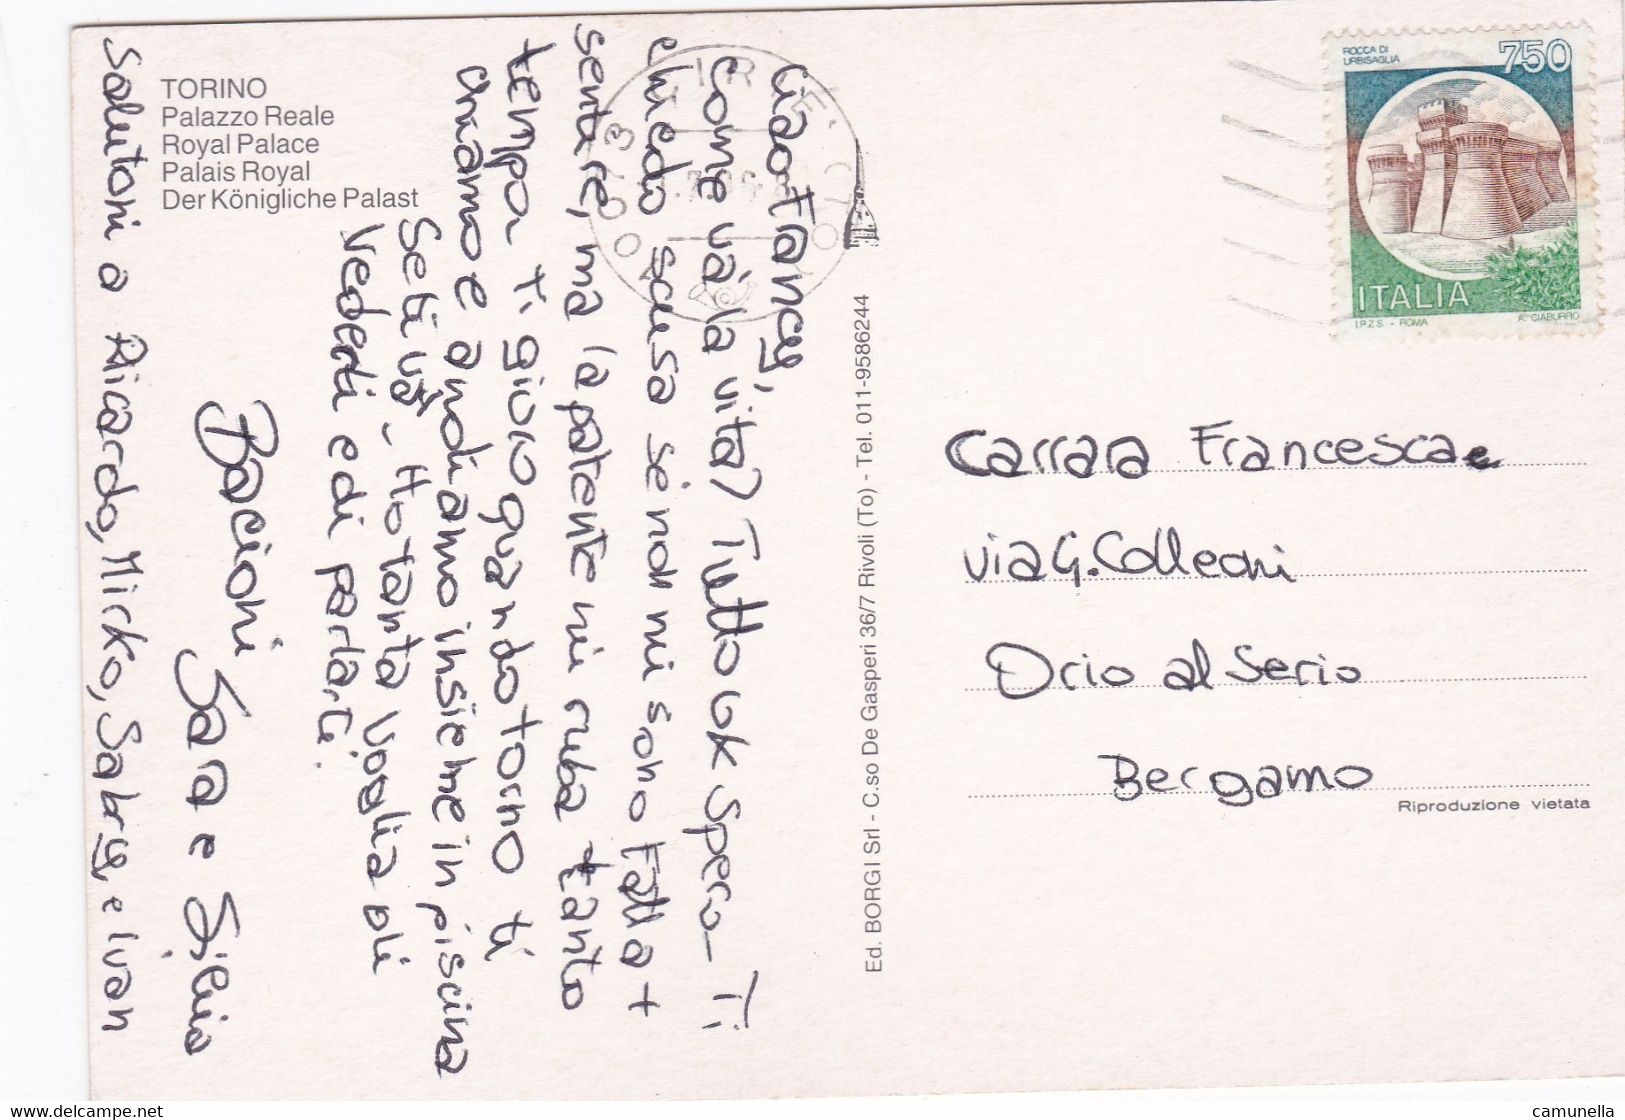 TORINO
Palazzo Reale
Royal Palace
Palais Royal
Der Königliche Palast
Ciao Francy,
come và la vita? Tutto ok spero_ Ti
chiedo scusa se non mi sono Fatta +
sentire, ma la patente mi ruba tanto
tempo. Ti giuro quando torno ti
chiamo e andiamo insieme in piscina
Se ti và_ Ho tanta Voglia di
Vederti e di parlarti.
Bacioni
Sara e Silvia
Salutoni a Riccardo, Mirko, Sabry, e Ivan
Ed. BORGI Srl - C.so De Gasperi 36/7 Rivoli (To) - Tel. 011-9586244
ROCCA DI
URBISAGLIA
750
ITALIA
I.P.Z.S. - ROMA
A. CIABURRO
Carrara Francesca
via G. Colleoni
Orio al Serio
Bergamo
Riproduzione vietata
https://www.delcampe.net
camunella